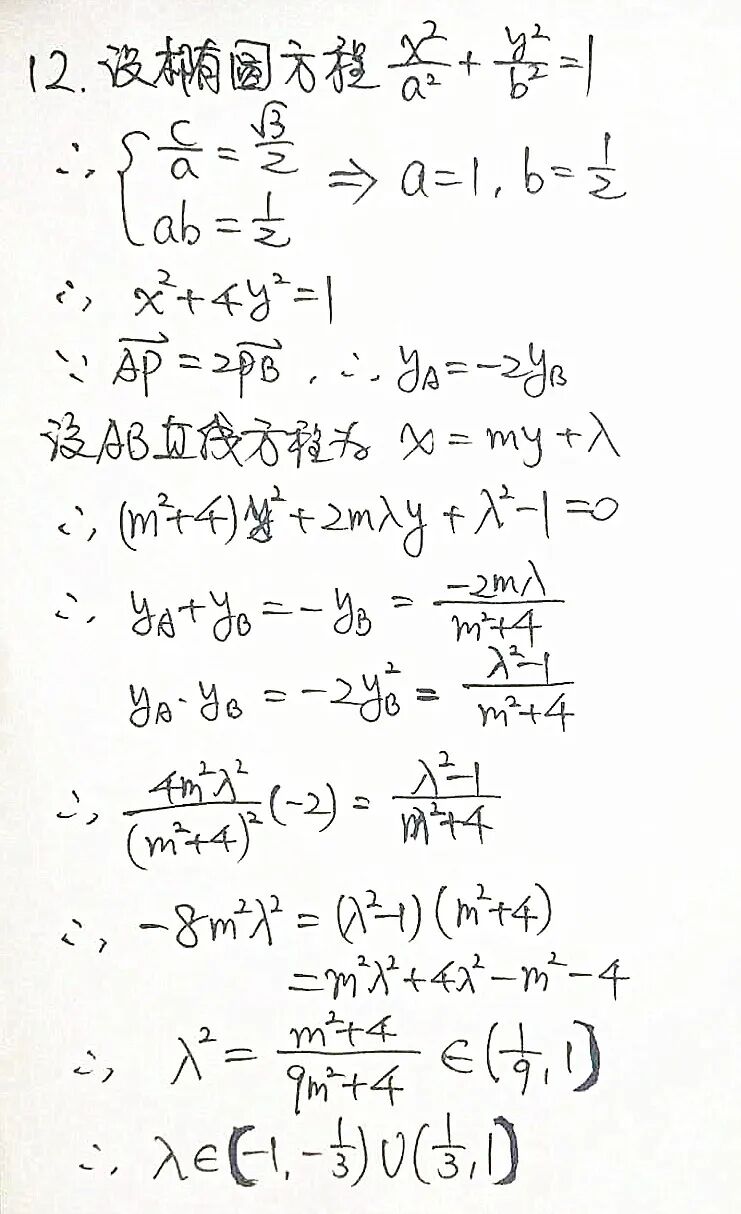 12. 设椭圆方程 x²/a² + y²/b² = 1
∴ { c/a = √3/2
ab = 1/2 ⇒ a=1, b=1/2
∴ x²+4y²=1
∵ AP→ = 2PB→, ∴ y_A = -2y_B
设AB直线方程为 x = my + λ
∴ (m²+4)y² + 2mλy + λ²-1 = 0
∴ y_A + y_B = -y_B = -2mλ/(m²+4)
y_A · y_B = -2y_B² = (λ²-1)/(m²+4)
∴ 4m²λ²/(m²+4)² (-2) = (λ²-1)/(m²+4)
∴ -8m²λ² = (λ²-1)(m²+4)
= m²λ²+4λ²-m²-4
∴ λ² = (m²+4)/(9m²+4) ∈ (1/9, 1)
∴ λ∈(-1, -1/3)∪(1/3, 1)